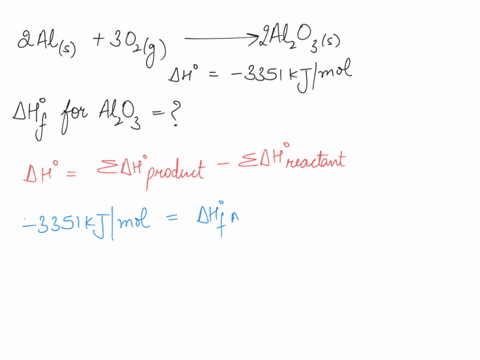 2Al(s) + 3O₂(g) ⟶ 2Al₂O₃(s)
ΔH° = -3351 kJ/mol
ΔH°f for Al₂O₃ = ?
ΔH° = ΣΔH°product - ΣΔH°reactant
-3351 kJ/mol = ΔH°f